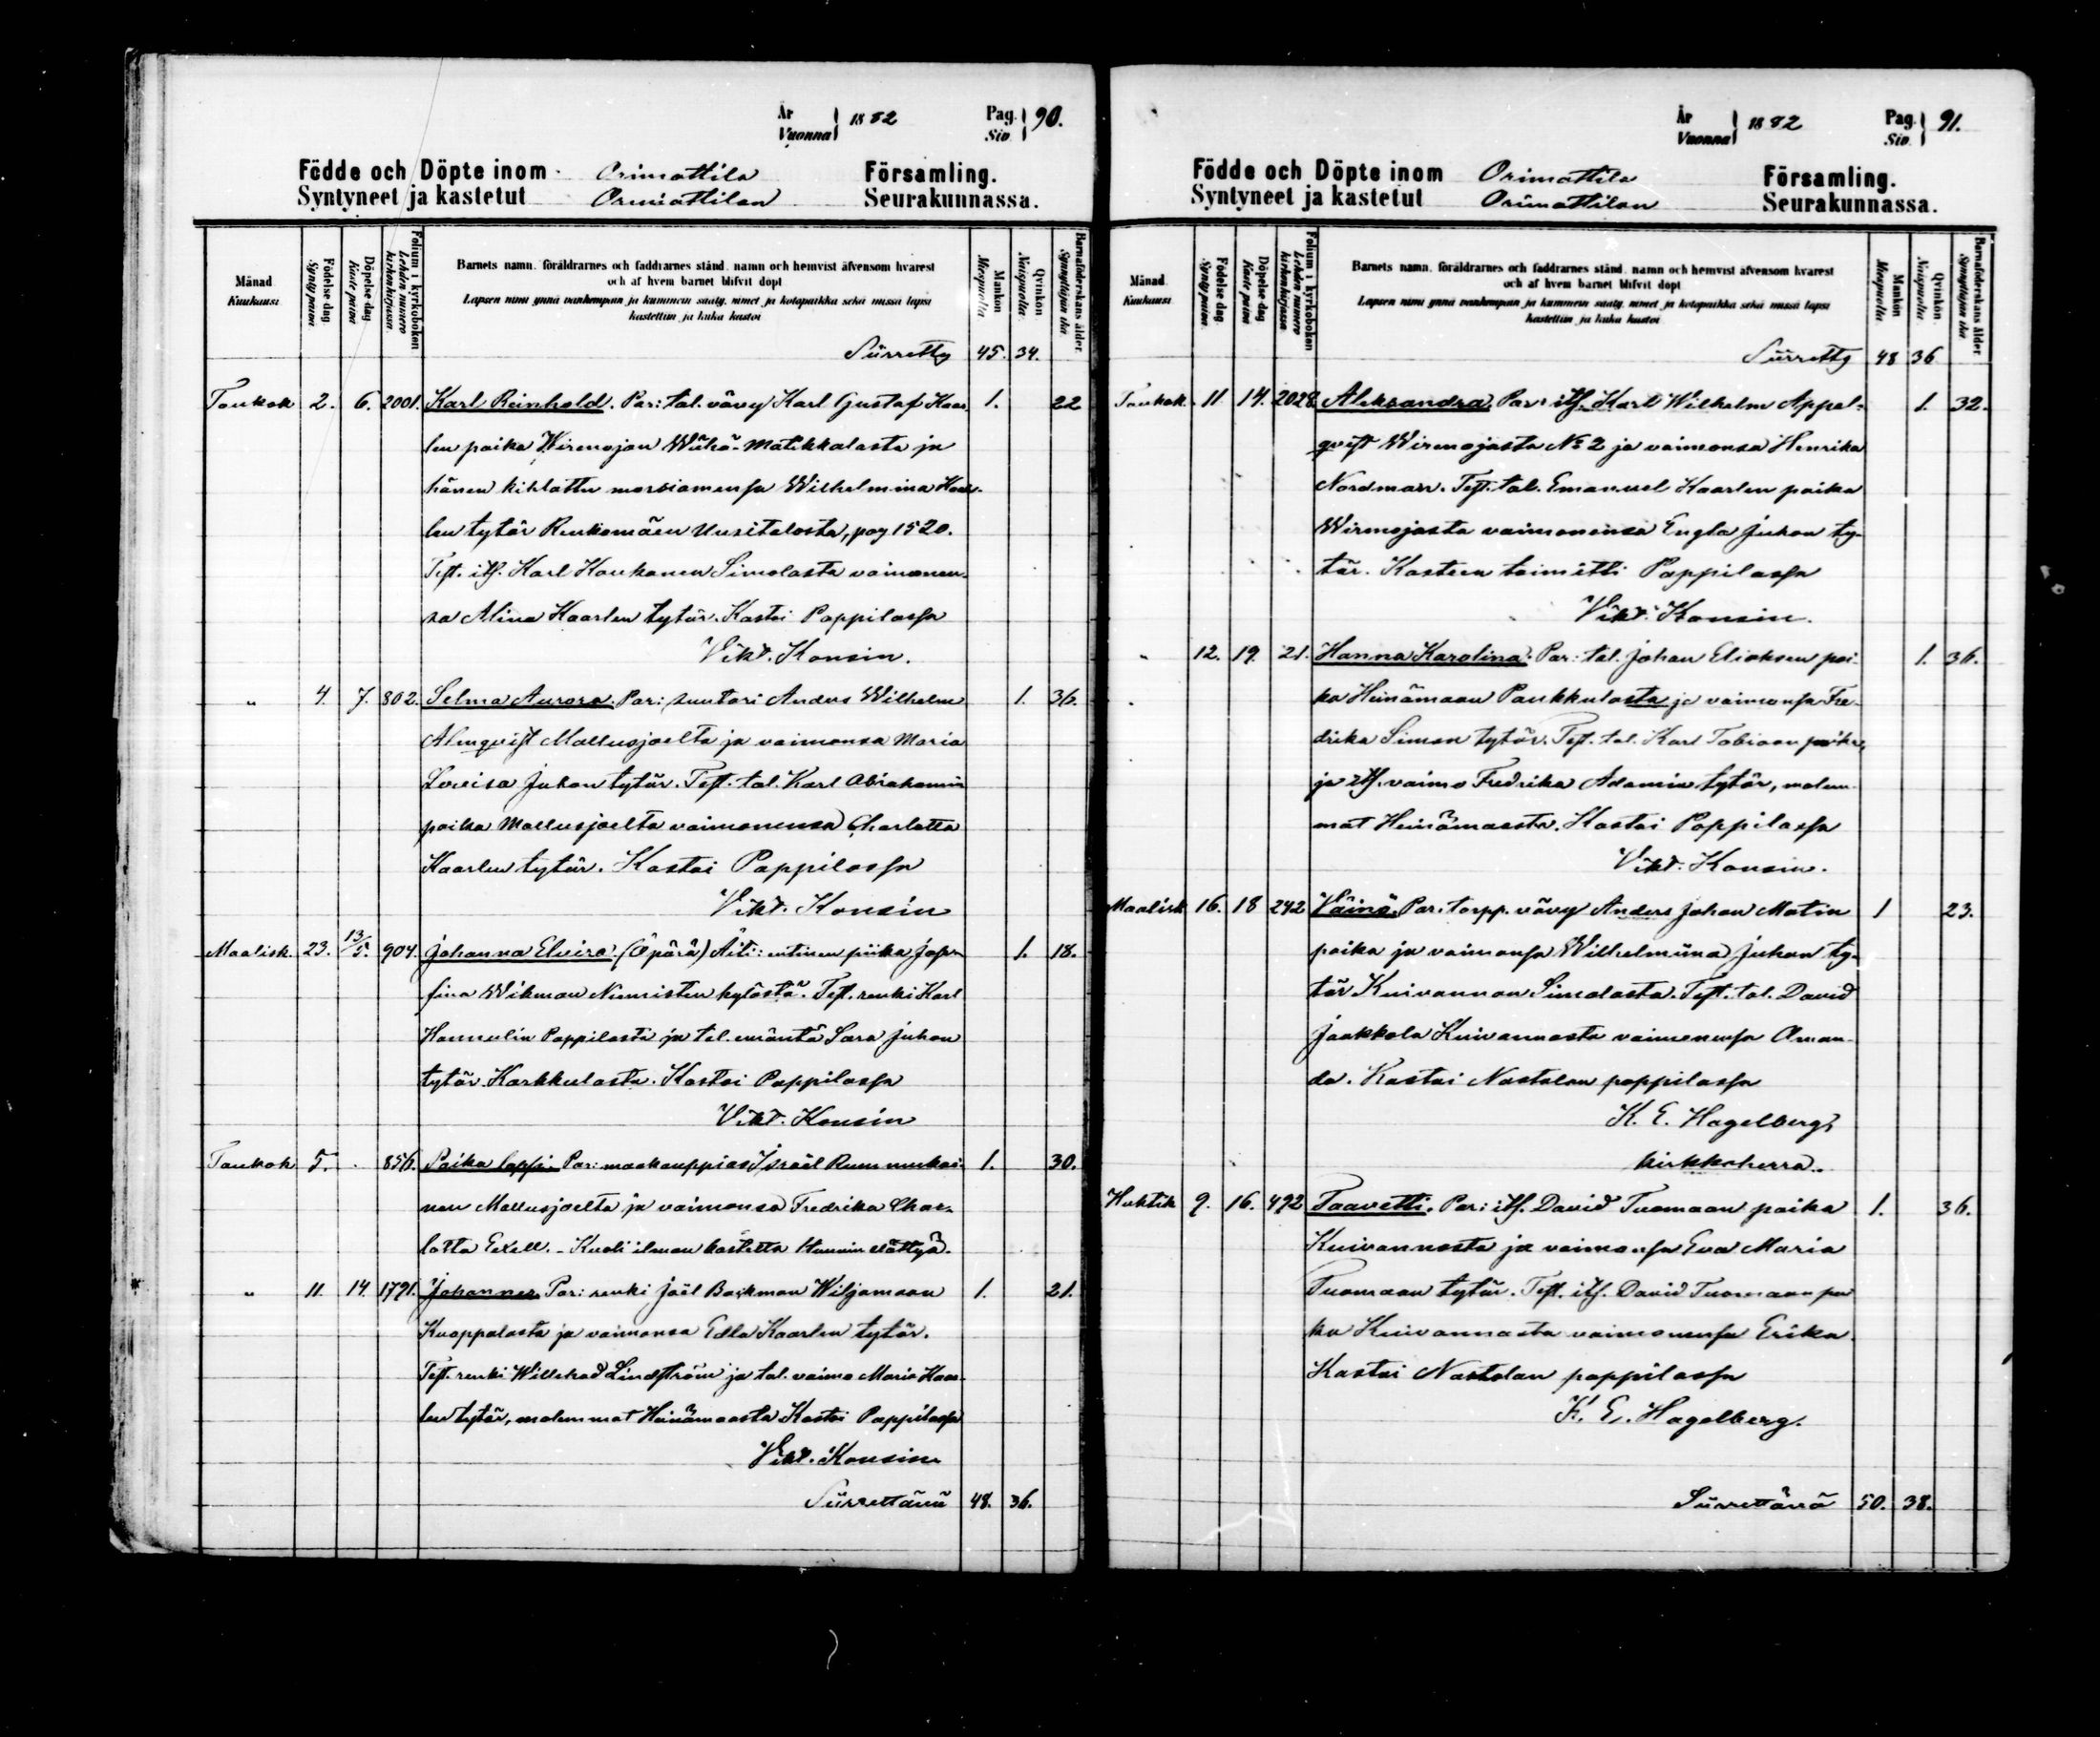 År
Vuonna } 1882
Pag.
Siv. } 90.
Födde och Döpte inom Orimattila Församling.
Syntyneet ja kastetut Orimattilan Seurakunnassa.
Månad Kuukausi
Födelse dag Syntypäivä
Döpelse dag Kastepäivä
Folium i kyrkoboken Lehden numero kirkonkirjassa
Barnets namn, föräldrarnes och faddrarnes stånd, namn och hemvist äfvensom hvarest
och af hvem barnet blifvit döpt
Lapsen nimi ynnä vanhempain ja kummein sääty, nimet ja kotopaikka sekä missä lapsi
kastettiin ja kuka kastoi
Mankön Miespuolia
Qvinkön Naispuolia
Barnaföderskans ålder Synnyttäjän ikä
Siirretty 45. 34.
Toukok 2. 6. 2001. Karl Reinhold. Par: tal. vävy Karl Gustaf Kaar 1. 22
len poika Wirenojan Wähä-Matikkalasta ja
hänen kihlattu morsiamensa Wilhelmina Kaar-
len tytär Renkomäen Uusitalosta, pag 1520.
Test. its. Karl Koukonen Simolasta vaimonen-
sa Alina Kaarlen tytär. Kastoi Pappilassa
Vikt. Konsin.
" 4. 7. 802. Selma Aurora. Par: suutari Anders Wilhelm 1. 36.
Almqvist Mallusjoelta ja vaimonsa Maria
Lovisa Juhon tytär. Test. tal. Karl Abrahamin
poika Mallusjoelta vaimonensa Charlotta
Kaarlen tytär. Kastoi Pappilassa
Vikt. Konsin
Maalisk. 23. 13/5. 904. Johanna Elvira. (Äpärä) Äiti: entinen piika Jose- 1. 18.
fina Wikman Niemisten kylästä. Test. renki Karl
Hannulin Pappilasta ja tal. emäntä Sara Juhon
tytär Karkkulasta. Kastoi Pappilassa
Vikt. Konsin
Toukok 5. . 856. Poika lapsi Par: maakauppias Israël Rummukai- 1. 30.
nen Mallusjoelta ja vaimonsa Fredrika Char-
lotta Exell. - Kuoli ilman kastetta
" 11. 14. 1791. Johannes Par: renki Joël Backman Wiljamaan 1. 21.
Kuoppalasta ja vaimonsa Edla Kaarlen tytär.
Test. renki Willehad Lindström ja tal. vaimo Maria Kaar-
len tytär, molemmat Heinämaasta Kastoi Pappilassa
Vikt. Konsin
Siirrettävä 48. 36.
År
Vuonna } 1882
Pag.
Siv. } 91.
Födde och Döpte inom Orimattila Församling.
Syntyneet ja kastetut Orimattilan Seurakunnassa.
Månad Kuukausi
Födelse dag Syntypäivä
Döpelse dag Kastepäivä
Folium i kyrkoboken Lehden numero kirkonkirjassa
Barnets namn, föräldrarnes och faddrarnes stånd, namn och hemvist äfvensom hvarest
och af hvem barnet blifvit döpt
Lapsen nimi ynnä vanhempain ja kummein sääty, nimet ja kotopaikka sekä missä lapsi
kastettiin ja kuka kastoi
Mankön Miespuolia
Qvinkön Naispuolia
Barnaföderskans ålder Synnyttäjän ikä
Siirretty 48 36
Toukok. 11. 14. 2028. Aleksandra. Par: its. Karl Wilhelm Appel- 1. 32.
qvist Wirenojasta No 2 ja vaimonsa Henrika
Nordman. Test. tal. Emanuel Kaarlen poika
Wirenojasta vaimonensa Engla Juhon ty-
tär. Kasteen toimitti Pappilassa
Vikt. Konsin.
" 12. 19. 21. Hanna Karolina. Par: tal. Johan Eliaksen poi- 1. 36.
ka Heinämaan Paukkulasta ja vaimonsa Fre-
drika Simon tytär. Test. tal. Karl Tobiaan poika,
ja its. vaimo Fredrika Adamin tytär, molem-
mat Heinämaasta. Kastoi Pappilassa
Vikt. Konsin.
Maalisk 16. 18 242 Väinö. Par. torpp. vävy Anders Johan Matin 1 23.
poika ja vaimonsa Wilhelmiina Juhon ty-
tär Kuivannon Simolasta. Test. tal. David
Jaakkola Kuivannosta vaimonensa Aman-
da. Kastoi Nastolan pappilassa
K. E. Hagelberg,
kirkkoherra.
Huhtik 9. 16. 492 Taavetti. Par: its. David Tuomaan poika 1. 36.
Kuivannosta ja vaimonsa Eva Maria
Tuomaan tytär. Test. its. David Tuomaan poi
ka Kuivannosta vaimonensa Erika
Kastoi Nastolan pappilassa
K. E. Hagelberg.
Siirrettävä 50. 38.